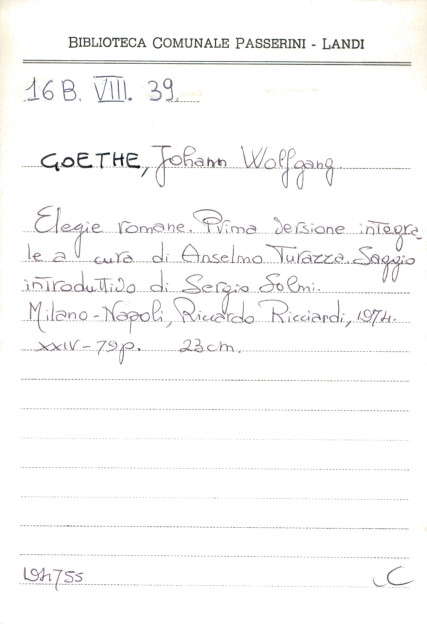 BIBLIOTECA COMUNALE PASSERINI - LANDI
16 B. VIII. 39.
GOETHE, Johann Wolfgang.
Elegie romane. Prima versione integra
le a cura di Anselmo Turazza. Saggio
introduttivo di Sergio Solmi.
Milano-Napoli, Riccardo Ricciardi, 1974.
XXIV-79p. 23cm.
C